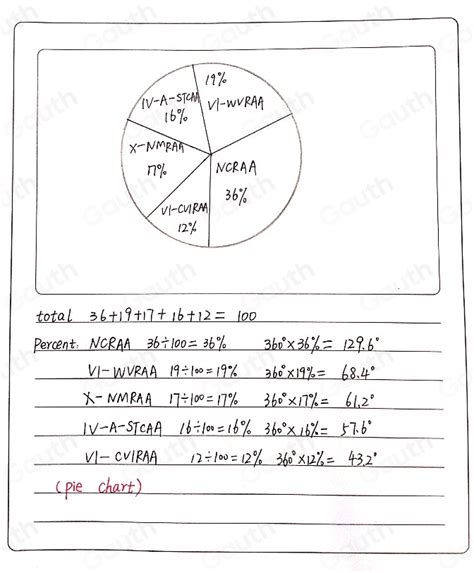 19%
IV-A-STCAA
VI-WVRAA
16%
X-NMRAA
NCRAA
17%
36%
VI-CVIRAA
12%
total 36+19+17+16+12= 100
Percent: NCRAA 36÷100=36% 360°×36%= 129.6°
VI-WVRAA 19÷100=19% 360°×19%= 68.4°
X-NMRAA 17÷100=17% 360°×17%= 61.2°
IV-A-STCAA 16÷100=16% 360°×16%= 57.6°
VI-CVIRAA 12÷100=12% 360°×12%= 43.2°
(pie chart)
Gauth